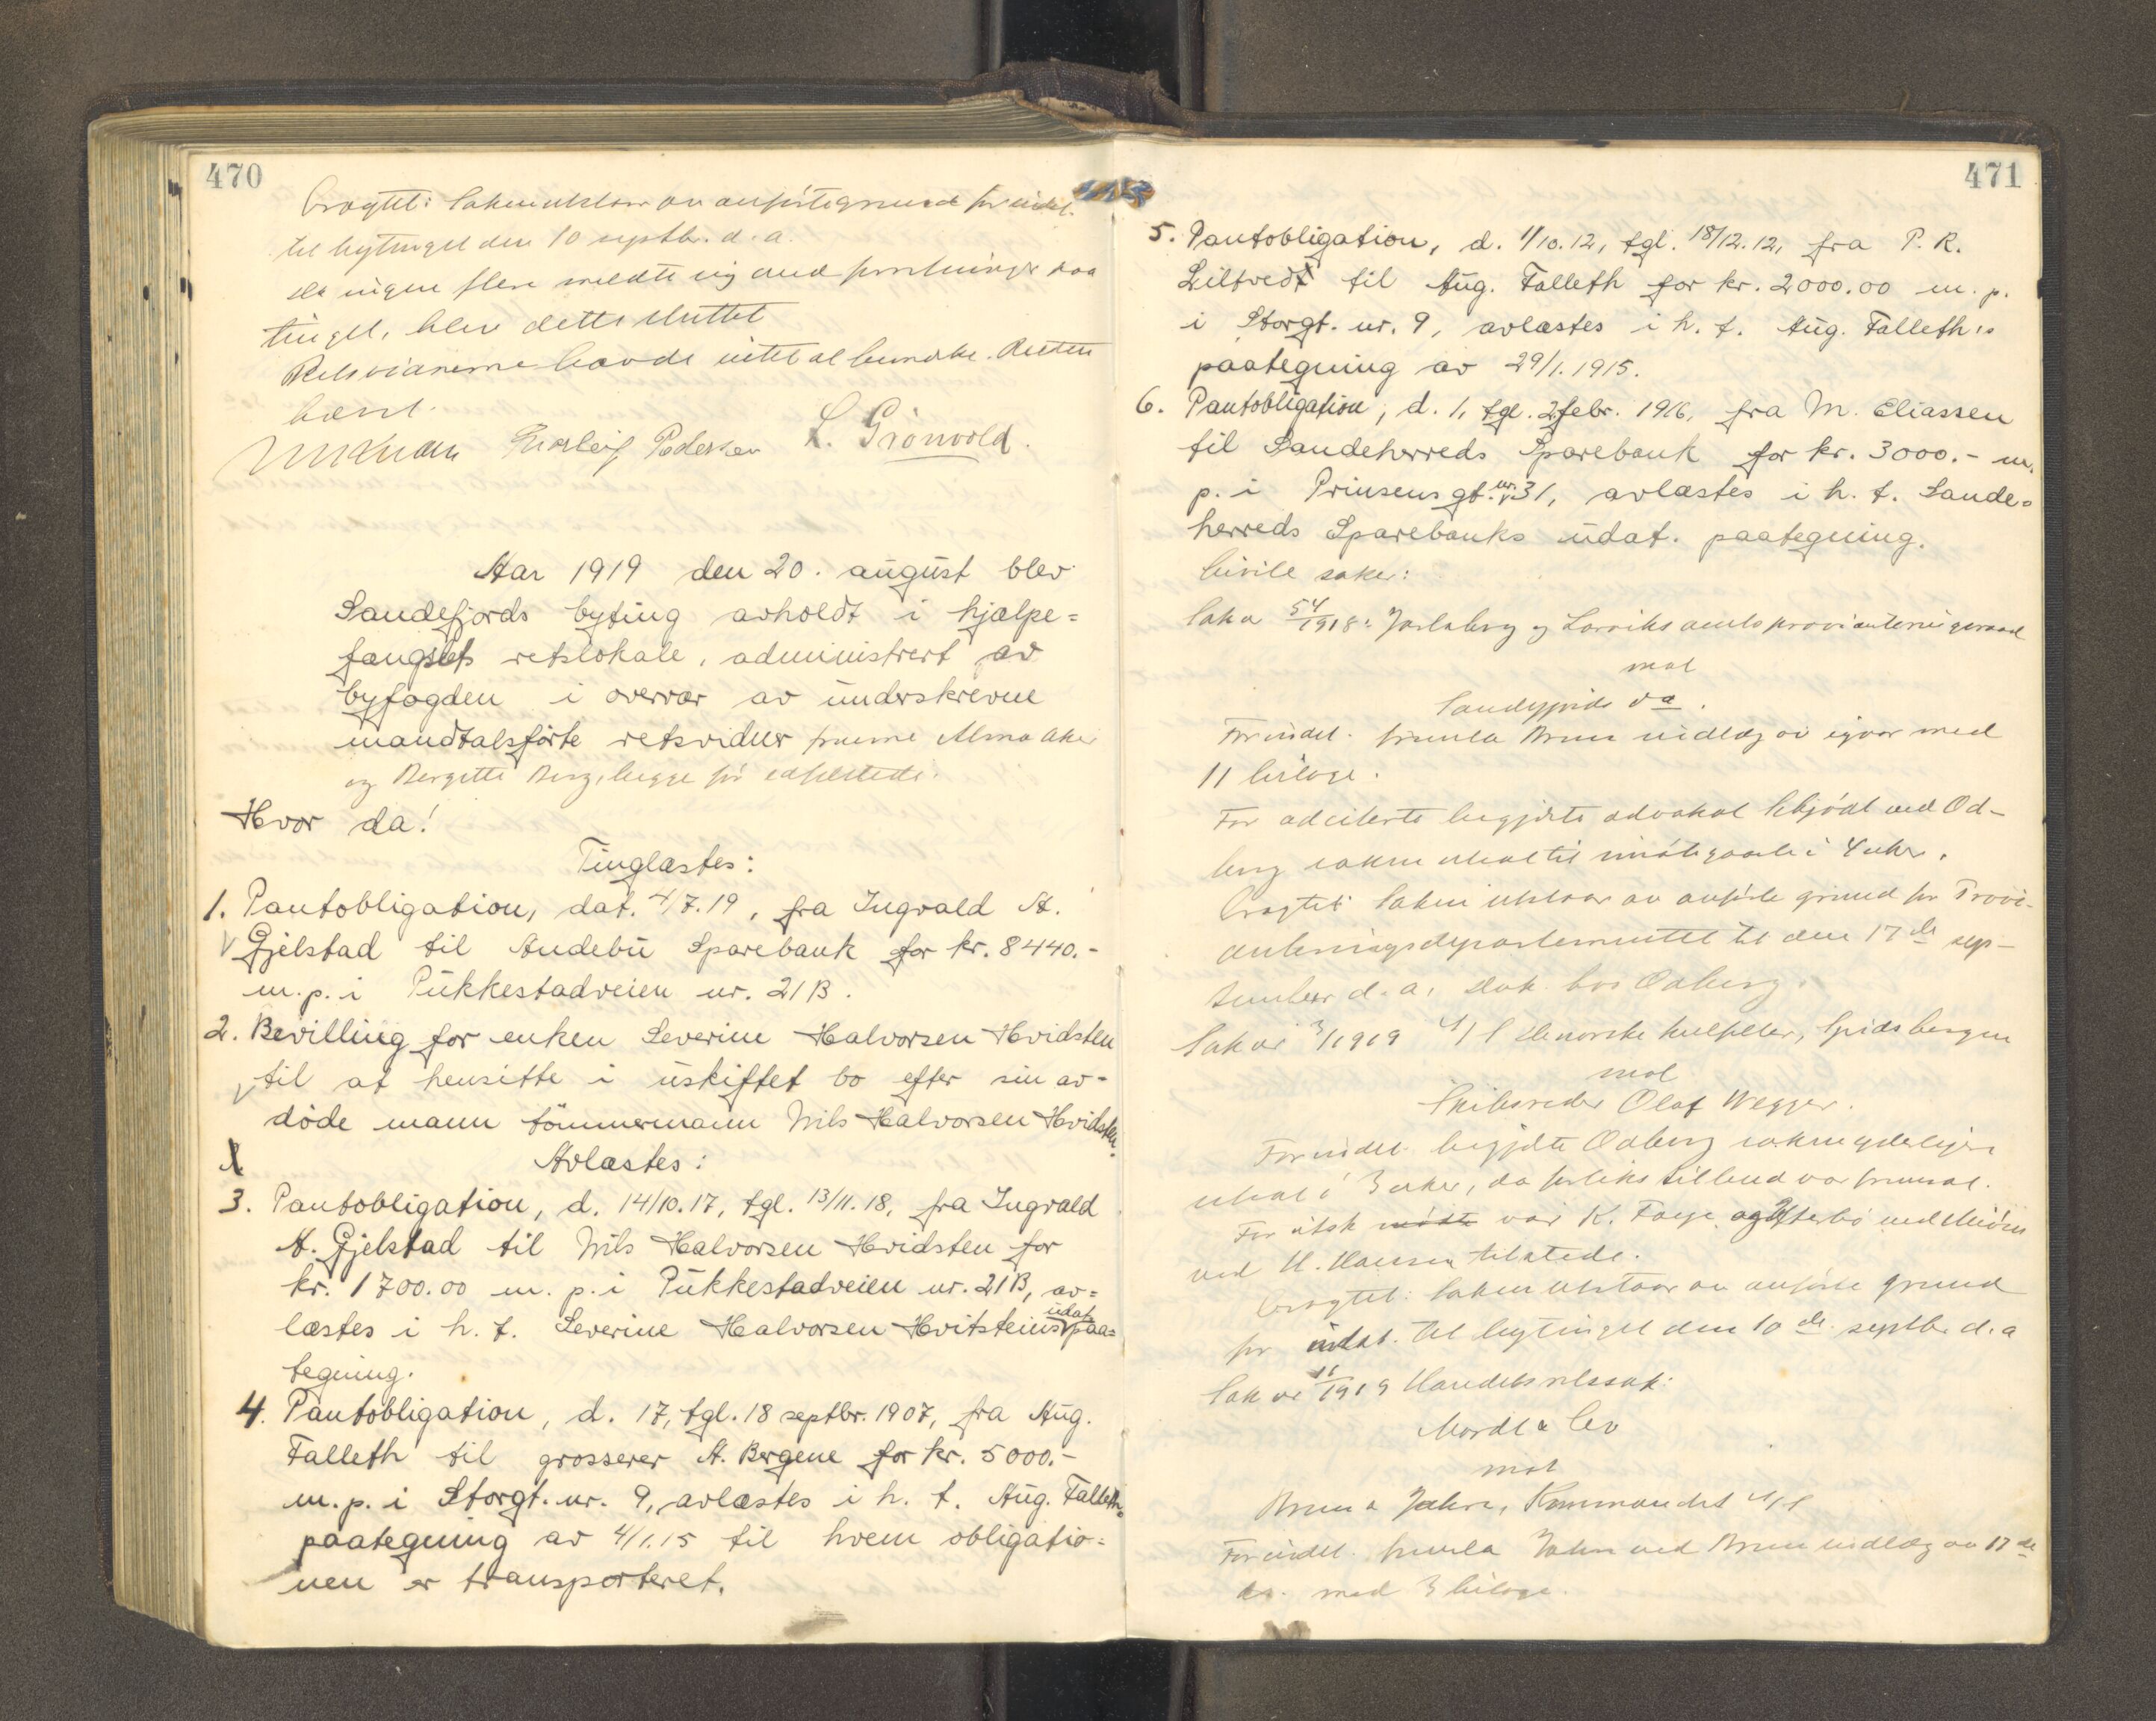 470
Eragtet: Saken utstaar av anførte grund for indst.
til bytinget den 10 septb. d. a.
Da ingen flere meldte sig med forretninger paa
tinget, blev dette sluttet
Retsvidnerne havde intet at bemerke. Retten
hævet.
Thorleif Pedersen L. Grönvold.
Aar 1919 den 20. august blev
Sandefjords byting avholdt i hjælpe=
fængslets retslokale, administrert av
byfogden i overvær av underskrevne
mandtalsførte retsvidner fruerne Alma Aker
og Bergitte Berg, begge før edfæstede.
Hvor da!
Tinglæstes:
1. Pantobligation, dat. 4/7.19, fra Ingvald A.
Gjelstad til Andebu Sparebank for kr. 8440.-
m. p. i Pukkestadveien nr. 21B.
2. Bevilling for enken Severine Halvorsen Hvidsten
til at hensitte i uskiftet bo efter sin av=
døde mann tømmermann Nils Halvorsen Hvidsten.
Avlæstes:
3. Pantobligation, d. 14/10.17, tgl. 13/11.18, fra Ingvald
A. Gjelstad til Nils Halvorsen Hvidsten for
kr. 1700.00 m. p. i Pukkestadveien nr. 21B, av=
læstes i h. t. Severine Halvorsen Hvitsteins udat. paa=
tegning.
4. Pantobligation, d. 17, tgl. 18 septbr. 1907, fra Aug.
Falleth til grosserer A. Bergene for kr. 5000.-
m. p. i Storgt. nr. 9, avlæstes i h. t. Aug. Falleths
paategning av 4/1.15 til hvem obligatio=
nen er transporteret.
471
5. Pantobligation, d. 1/10.12, tgl. 18/12.12, fra P. R.
Liltvedt til Aug. Falleth for kr. 2000.00 m. p.
i Storgt. nr. 9, avlæstes i h. t. Aug. Falleth's
paategning av 29/1.1915.
6. Pantobligation, d. 1, tgl. 2 febr. 1916, fra M. Eliassen
til Sandeherreds Sparebank for kr. 3000.- m.
p. i Prinsens gt. nr. 31, avlæstes i h. t. Sande=
herreds Sparebanks udat. paategning.
Civile saker:
Sak 54/1918: Jarlsberg og Larviks amts provianteringsraad
mot
Sandefjords do.
For indst. fremla Bruun indlæg av igaar med
11 bilage.
For adciterte begjærte advokat ved Od-
berg saken utsat til imøtegaaelse i 4 uker.
Eragtet: Saken utstaar av anførte grund for Provi-
anteringsdepartementet til den 17de sep-
tember d. a. Dok. hos Odberg.
Sak nr 3/1919 A/S De norske kulfelter, Spidsbergen
mot
Skibsreder Olaf Wegger.
For indst. begjærte Odberg saken yderligere
utsat i 3 uker, da forlikstilbud var fremsat.
For utsk møtte var K. Foge og
ved H. Hansen tilstede.
Eragtet: Saken utstaar av anførte grund
for indst. til bytinget den 10de septbr. d. a
Sak nr 11/1919 Handelsretssak:
& Co
mot
Bruun & Jahre, Kommandit A/S
For indst. fremla Jahre ved Bruun indlæg av 17de
ds. med 3 bilage.